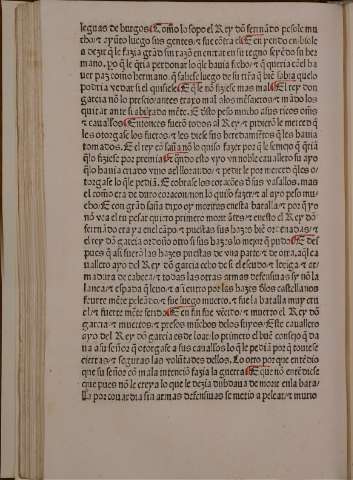 leguas de burgos Como lo sopo el Rey dõ fernãdo pesole mu
cho/ ⁊ ayũto luego sus gentes/ ⁊ fue cõtra el E en pendo en biole
a dezir q̃ le fazia grãd sin razõ en entrar en su regno seyẽdo su her
mano, po q̃ le q̃ria perdonar lo q̃ le hauia fecho/ ⁊ q̃ queria cõel ha
uer paz como hermano. q̃ saliese luego de su tr̃ra q̃ biẽ sabia quelo
podria vedar si el quisiese E q̃ le nõ fiziese mas mal El rey don
garcia nõ lo precio/ antes trayo mal alos mẽsajeros ⁊ mãdo los
quitar ante si abiltada mẽte. E desto peso mucho a sus ricos oms̃
⁊ cauallos Entonces fuerõ todos al Rey ⁊ pidierõ le merced q̃
les otorgase los fueros/ ⁊ les diese sus heredamiẽtos q̃ les hauia
tomados. E el rey cõ saña nõ lo quiso fazer por q̃ le semejo q̃ q̃riã
q̃ lo fiziese por premia E q̃ndo esto vyo vn noble cauallero su ayo
q̃ lo hauia criado vino ael llorãdo/ ⁊ pedir le por merced q̃ les o/
torgase lo q̃ le pediã. E cobrase los corações d̃ sus vasallos. mas
el cõmo era de duro coraçon nõ lo quiso fazer/ ⁊ al ayo peso mu/
cho/ E con grãd saña dixo oy morire en esta batalla/ ⁊ por q̃ yo
nõ vea el tu pesar quiero primero morir ãtes/ ⁊ en esto el Rey dõ
fernãdo era ya en el cãpo/ ⁊ puestas sus hazes biẽ ordenadas/ ⁊
el rey dõ garcia ordeno otro si sus hazes lo mejor q̃ pudo E des
pues q̃ asi fuerõ las hazes puestas de vna parte ⁊ de otra, aq̃l ca
uallero ayo del Rey dõ garcia echo de si el escudo/ ⁊ loriga ⁊ ar/
madura de cabeça/ ⁊ todas las otras armas defensiuas sy nõ la
lança/ ⁊ espada q̃ leuo/ ⁊ a ẽcuentro por las hazes d̃los castellanos
fuerte mẽte peleãdo/ ⁊ fue luego muerto, ⁊ fue la batalla muy cru
el/ ⁊ fuerte mẽte ferido E en fin fue vẽcido/ ⁊ muerto el Rey dõ
garcia/ ⁊ muertos/ ⁊ presos muchos delos suyos/ Este cauallero
ayo del Rey dõ garcia es de loar. lo primero el buẽ consejo q̃ da
ua a su señor q̃ otorgase a sus cauallos lo q̃ le pediã por q̃ touiese
ciertas/ ⁊ seguras las volũtades dellos. Lo otro por que entẽdio
que su señor cõ mala intenciõ fazia la guerra E que nõ entẽdiese
que pues nõ le creya lo que le dezia dubdaua de morir enla bata/
lla por couardia sin armas defensiuas se metio a pelear/ ⁊ murio